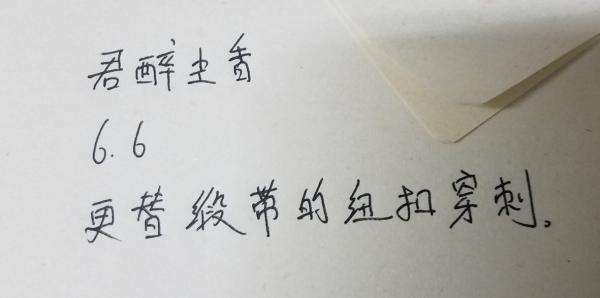 君醉生香
6.6
更替缎带的纽扣穿刺。